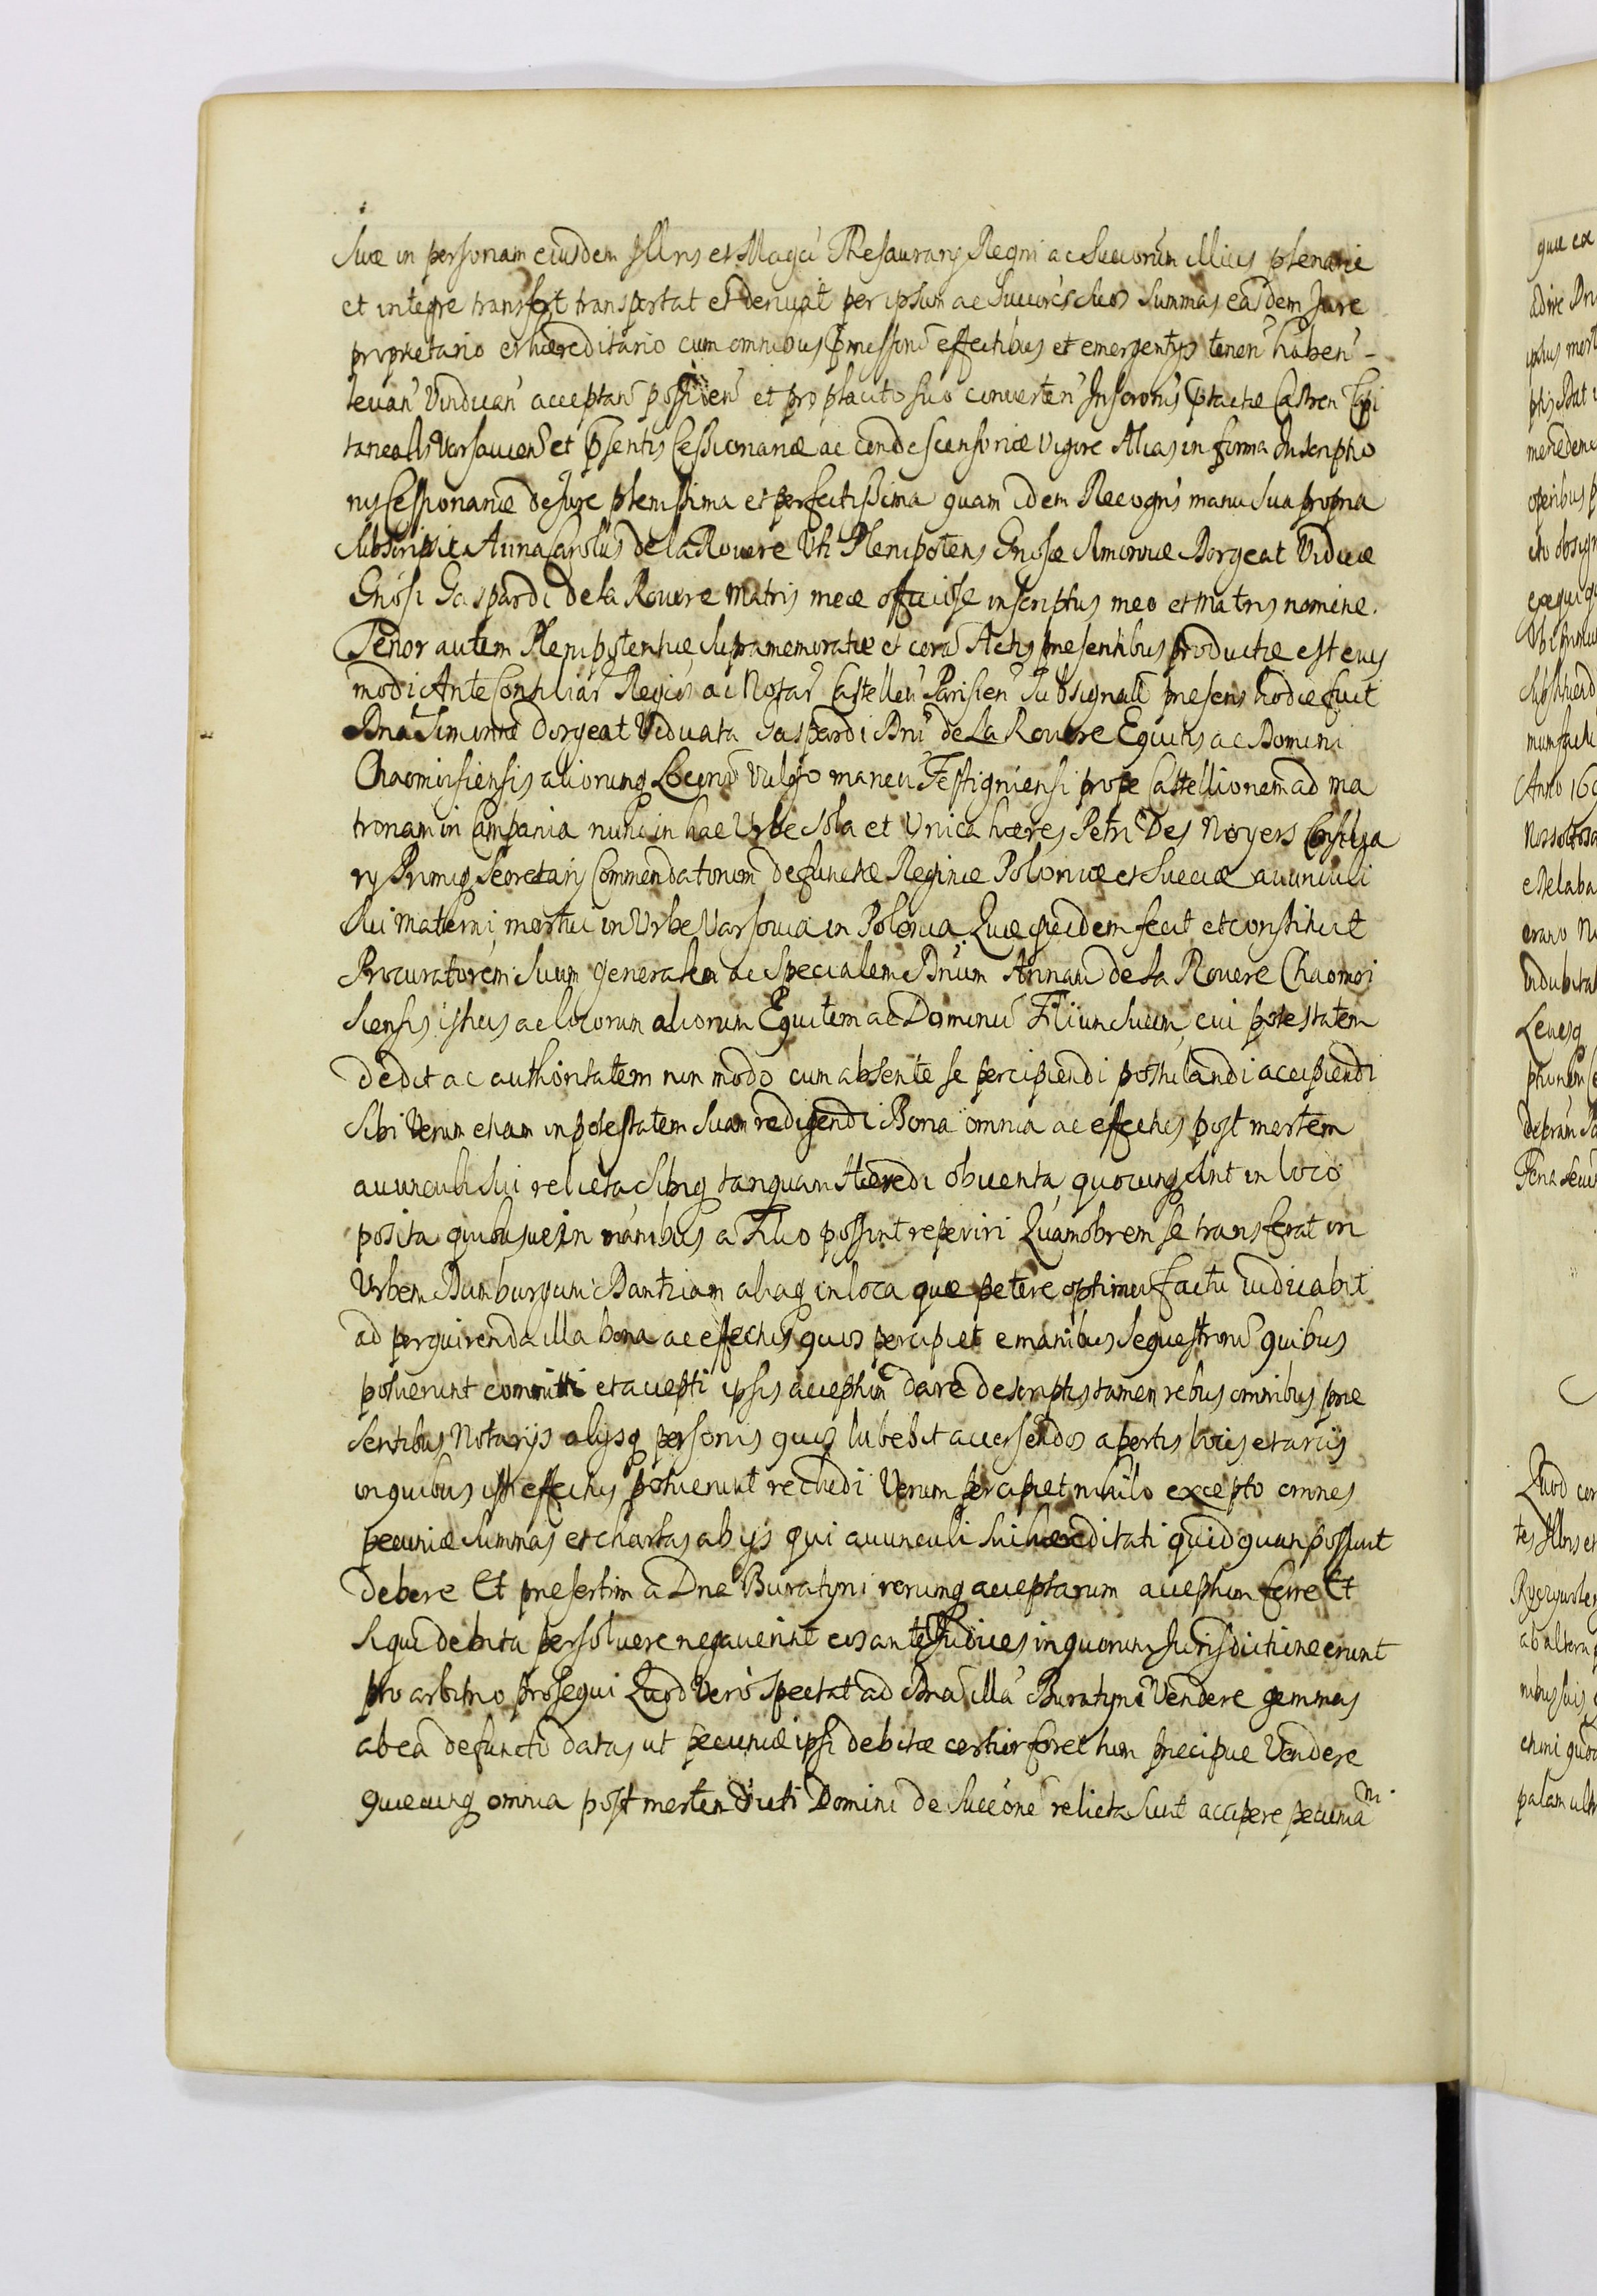 suæ in personam eiusdem Jllris et Magci Thesaurarij Regni ac Succorum illius plenarie
et integre transfert transportat et derivat per ipsum ac Succrés suos summas easdem Jure
proprietario et hæreditario cum omnibus præmissorũ effectibus et emergentijs tenen̄ haben̄ -
levan̄ Vindican̄ acceptan̄ possiden̄ et pro placito suo converten̄ Inscronis ptactæ Castren Capi
tanealis Varsavien̄ et p̄sentis Cessionariæ ac condescensoriæ vigore Alias in forma Inscriptio
nis Cessionariæ de Jure plenissima et perfectissima quam idem Recogns manu sua propria
subscripsit Anna Carolus de la Rovere Uti Plenipotens Gnosæ Simonæ Dorgeat Viduæ
Gnosi Gaspardi de la Rovere Matris meæ officiose inscriptus meo et Matris nomine.
Tenor autem Plenipotentiæ supramemoratæ et corã Actis præsentibus productæ est eius
modi Ante Consiliar̄ Regios ac Notar̄ Castelleti Parisien̄ Subsignatũ præsens hodie fuit
Dna Simonne Dorgeat Viduata Gaspardi Dni de La Rovere Equitis ac Domini
Chaomoisiensis aliorunq Locorũ Vulgo manen̄ Festigniensi prope Castellionem ad ma
tronam in Campania nunc in hac Urbe sola et Unica hæres Petri Des Noyers Consilia
rij Primiq Secretarij Commendatorum defunctæ Reginæ Poloniæ et Sueciæ avunculi
sui Materni mortui in Urbe Varsovia in Polonia Quæ quidem fecit et constituit
Procuratorem suum generalem ac specialem Dnum Annam de la Rovere Chaomoi
siensis istius ac locorum aliorum Equitem ac Dominũ Filiun suum, cui potestatem
dedit ac authoritatem non modo cum absente se percipiendi postulandi accipiendi
sibi Verum etiam in potestatem suam redigendi Bona omnia ac effectus post mortem
avunculi sui relicta sibiq tanquam Hæredi obventa, quocunq sint in loco
posita quibusve in manibus a Filio possint reperiri Quamobrem se transferat in
Urbem Hamburgum Dantziam aliaq in loca quæ petere optimũ factu iudicabit
ad perquirenda illa bona ac effectus quos percipiet e manibus sequestrorũ quibus
potuerunt committi et accepti ipsis acceptum dare descriptis tamen rebus omnibus præ
sentibus Notarijs alijsq personis quas lubebit accersendos apertis locis et arcis
in quibus isti effectus potuerunt recludi Verum percipiet nihilo excepto omnes
pecuniæ summas et chartas ab ijs qui avunculi sui hæreditati quidquam possunt
debere Et præsertim a Dna Buratyni rerumq acceptarum acceptum ferre Et
si qui debita persolvere negaverint eos ante Judices in quorum Jurisdictione erunt
pro arbitrio prosequi Quod Vero spectat ad Dnã illã Buratyni Vendere gemmas
ab ea defuncto datas ut pecuniæ ipsi debitæ certior foret tum præcipue Vendere
quæcunq omnia post mortem dicti Domini de Succone relicta sunt accipere pecuniam